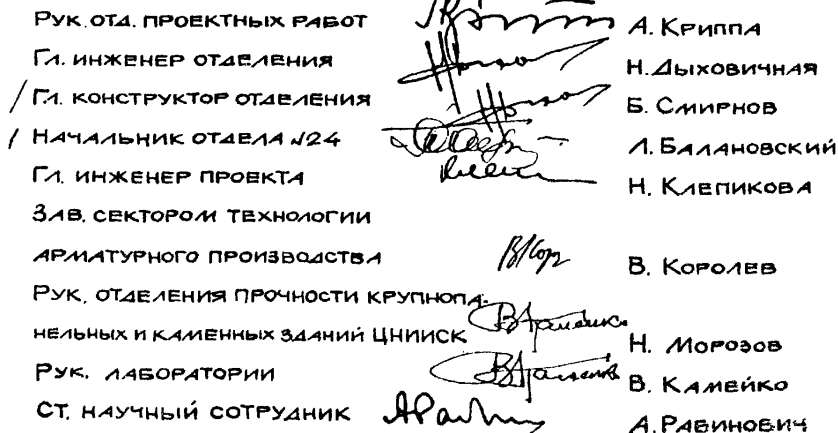 Рук. отд. проектных работ А. Криппа
Гл. инженер отделения Н. Дыховичная
Гл. конструктор отделения Б. Смирнов
Начальник отдела №24 Л. Балановский
Гл. инженер проекта Н. Клепикова
Зав. сектором технологии
арматурного производства В. Королев
Рук. отделения прочности крупнопа-
нельных и каменных зданий ЦНИИСК Н. Морозов
Рук. лаборатории В. Камейко
Ст. научный сотрудник А. Рабинович